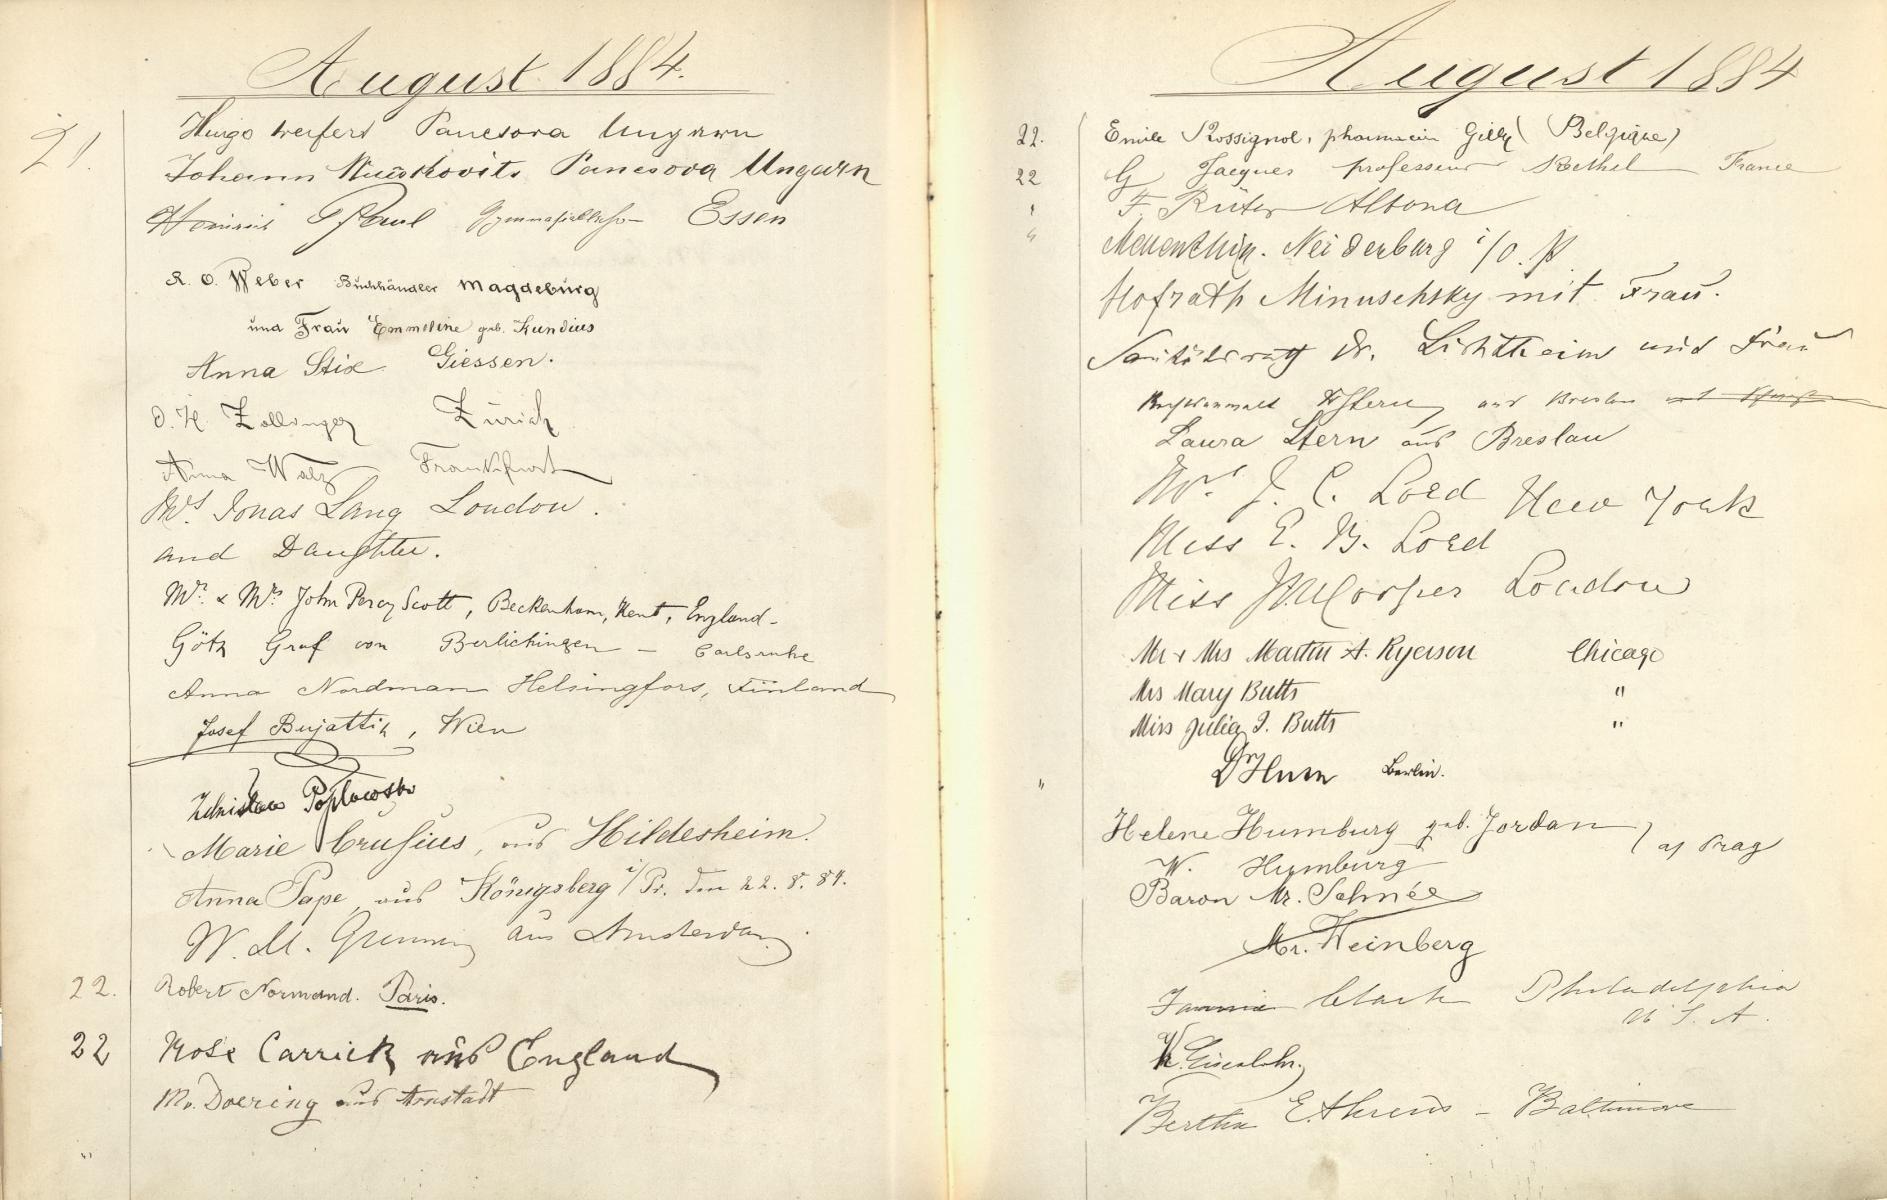 August 1884.
21.
Hugo Weifert Pancsova Ungarn
Johann Pancsova Ungarn
Heinrich Paul Gymnasiallehr Essen
R. O. Weber Buchhändler Magdeburg
und Frau Emmeline geb. Kundius
Anna Stix Giessen.
O. H. Zollinger Zürich
Anna Walz Frankfurt
Mrs Jonas Lang London.
and Daughter.
Mr. & Mrs. John Percy Scott, Beckenham, Kent, England-
Götz Graf von Berlichingen - Carlsruhe
Anna Nordman Helsingfors, Finland
Josef Bujattik, Wien
Zdzislaw Poplawski
Marie Crusius, aus Hildesheim.
Anna Pape, aus Königsberg i/Pr. den 22. 8. 84.
W. M. aus Amsterdam.
22. Robert Normand. Paris.
22 Rose Carrick aus England
M. Doering aus Arnstadt
"
August 1884
22. Emile Rossignol, pharmacien Gilly (Belgique)
22 G Jacques professeur Rethel France
" F. Rüter Altona
" Neidenburg i/O. P
Hofrath Minuschsky mit Frau.
Sanitätsrath Dr. Lichtheim und Frau
Rechtsanwalt Stern aus Breslau
Laura Stern aus Breslau
Mr. J. C. Lord New York
Miss E. B. Lord
Miss London
Mr & Mrs Martin A. Ryerson Chicago
Mrs Mary Butts "
Miss Julia I. Butts "
" Dr Berlin.
Helene Humburg geb. Jordan } a/ Prag
W. Humburg
Baron Mr. Schnée
Mr. Weinberg
Fannie Clark Philadelphia
U S. A.
K. Eisenlohr.
Bertha E. Ahrens - Baltimore